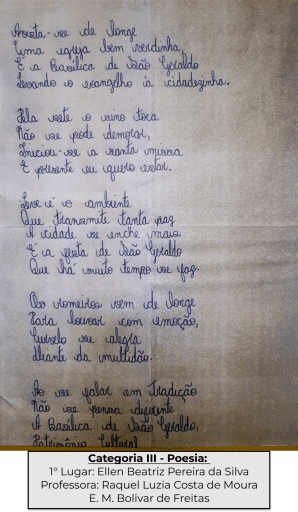 Avista-se de longe
Uma igreja bem verdinha,
É a Basílica de São Geraldo
Levando o evangelho à cidadezinha.
Pela sete o sino toca
Não se pode demorar,
Iniciou-se a santa missa
E presente eu quero estar.
Esse é o ambiente
Que transmite tanta paz
A cidade se enche mais
É a festa de São Geraldo
Que há muito tempo se faz.
Os romeiros vem de longe
Para louvar com emoção,
Curvelo se alegra
diante da multidão.
Ao se falar em Tradição
Não se pensa diferente
A Basílica de São Geraldo,
Patrimônio Cultural
Categoria III - Poesia:
1° Lugar: Ellen Beatriz Pereira da Silva
Professora: Raquel Luzia Costa de Moura
E. M. Bolivar de Freitas